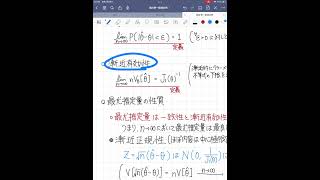 lim P(|θ̂-θ|<ε)=1
n→∞
定義
漸近有効性
lim nV_θ[θ̂] = J₁(θ)⁻¹
n→∞
定義
最尤推定量の性質
最尤推定量は一致性と漸近有効性
つまり、n→∞において最尤推定量は最良
漸近正規性
Z=√n(θ̂-θ)は N(0,
V[√n(θ̂-θ)] = nV[θ̂] n→∞